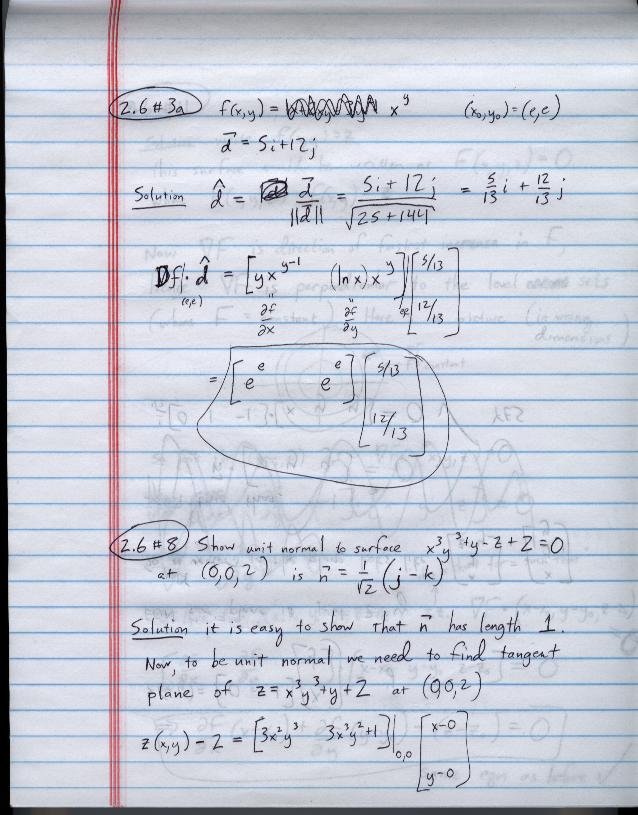 2.6 # 3a f(x,y) = x^y (x₀,y₀) = (e,e)
d⃗ = 5i+12j
Solution d̂ = d⃗/||d⃗|| = (5i + 12j)/√(25+144) = 5/13 i + 12/13 j
Df|(e,e) · d̂ = [yx^(y-1) (ln x) x^y]|(e,e) [5/13
12/13]
∂f/∂x ∂f/∂y
= [e^e e^e] [5/13
12/13]
2.6 # 8 Show unit normal to surface x³y³+y-z+2=0
at (0,0,2) is n⃗ = 1/√2 (j-k)
Solution it is easy to show that n⃗ has length 1.
Now, to be unit normal we need to find tangent
plane of z = x³y³+y+2 at (0,0,2)
z(x,y) - 2 = [3x²y³ 3x³y²+1]|0,0 [x-0
y-0]